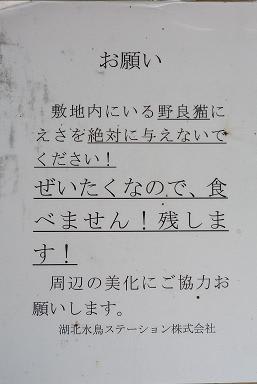 お願い
敷地内にいる野良猫に
えさを絶対に与えないで
ください!
ぜいたくなので、食
べません!残しま
す!
周辺の美化にご協力お
願いします。
湖北水鳥ステーション株式会社